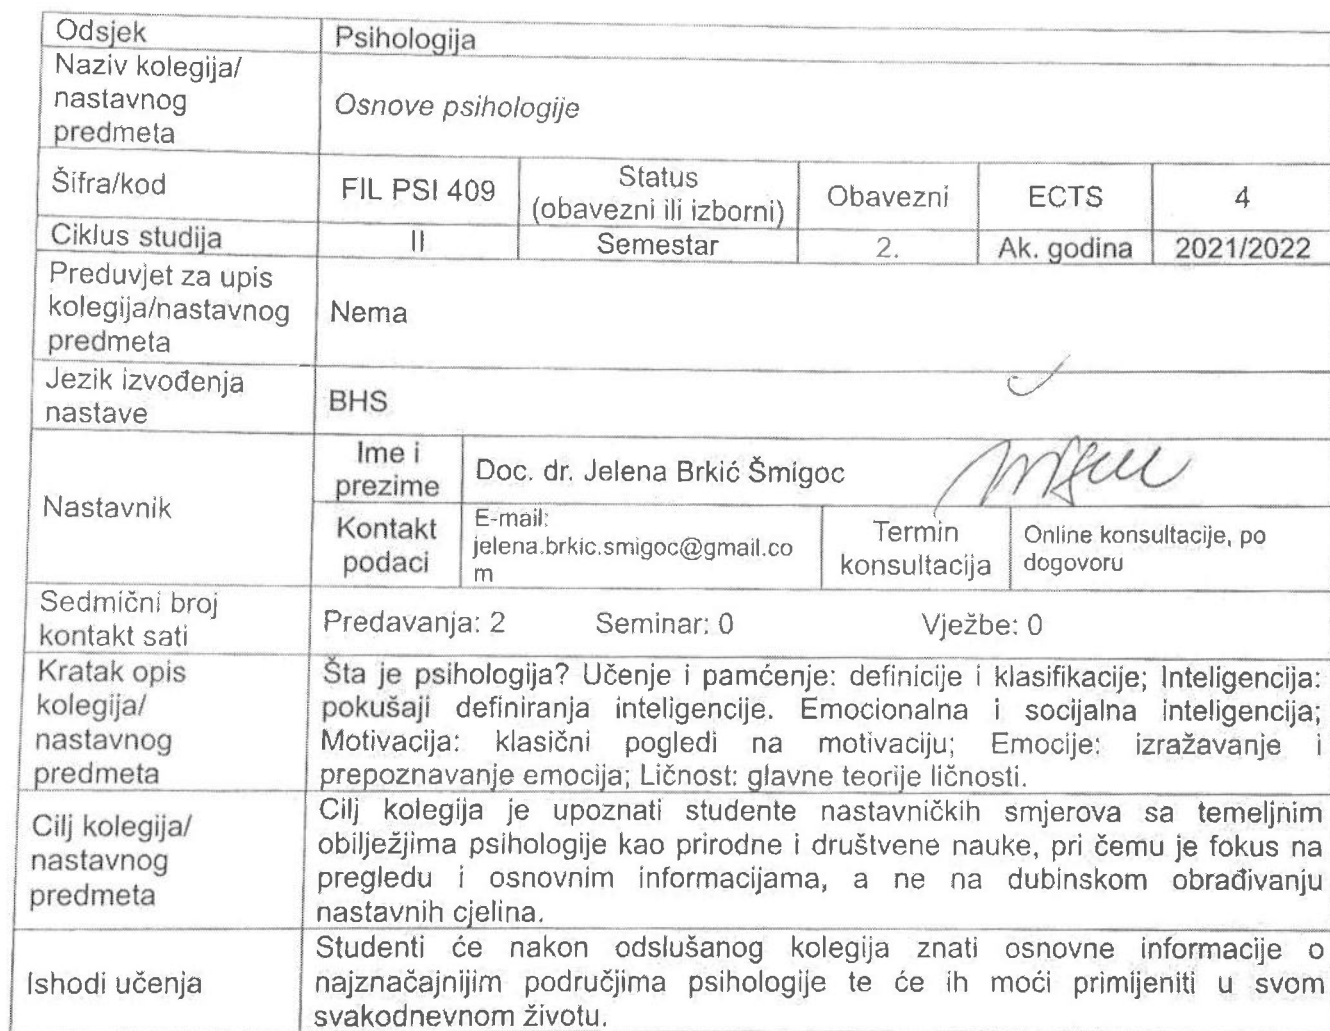 Odsjek
Psihologija
Naziv kolegija/
nastavnog
predmeta
Osnove psihologije
Šifra/kod
FIL PSI 409
Status
(obavezni ili izborni)
Obavezni
ECTS
4
Ciklus studija
II
Semestar
2.
Ak. godina
2021/2022
Preduvjet za upis
kolegija/nastavnog
predmeta
Nema
Jezik izvođenja
nastave
BHS
Nastavnik
Ime i
prezime
Doc. dr. Jelena Brkić Šmigoc
Kontakt
podaci
E-mail:
jelena.brkic.smigoc@gmail.co
m
Termin
konsultacija
Online konsultacije, po
dogovoru
Sedmični broj
kontakt sati
Predavanja: 2 Seminar: 0 Vježbe: 0
Kratak opis
kolegija/
nastavnog
predmeta
Šta je psihologija? Učenje i pamćenje: definicije i klasifikacije; Inteligencija:
pokušaji definiranja inteligencije. Emocionalna i socijalna inteligencija;
Motivacija: klasični pogledi na motivaciju; Emocije: izražavanje i
prepoznavanje emocija; Ličnost: glavne teorije ličnosti.
Cilj kolegija/
nastavnog
predmeta
Cilj kolegija je upoznati studente nastavničkih smjerova sa temeljnim
obilježjima psihologije kao prirodne i društvene nauke, pri čemu je fokus na
pregledu i osnovnim informacijama, a ne na dubinskom obrađivanju
nastavnih cjelina.
Ishodi učenja
Studenti će nakon odslušanog kolegija znati osnovne informacije o
najznačajnijim područjima psihologije te će ih moći primijeniti u svom
svakodnevnom životu.